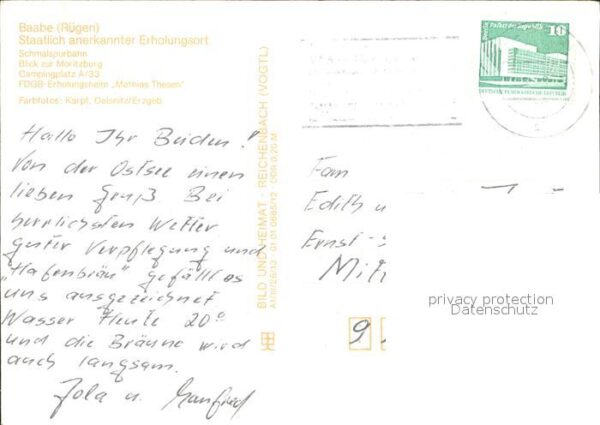 Baabe (Rügen)
Staatlich anerkannter Erholungsort
Schmalspurbahn
Blick zur Moritzburg
Campingplatz A/33
FDGB-Erholungsheim „Mathias Thesen"
Farbfotos: Karpf, Oelsnitz/Erzgeb.
Hallo Ihr Beiden!
Von der Ostsee einen
lieben Gruß. Bei
herrlichsten Wetter
guter Verpflegung und
„Hafenbräu" gefällt es
uns ausgezeichnet
Wasser Heute 20°
und die Bräune wird
auch langsam.
Jola u. Manfred
BILD UND HEIMAT · REICHENBACH (VOGTL)
DDR 0,20 M
Berlin, Palast der Republik
10
DEUTSCHE DEMOKRATISCHE REPUBLIK
Fam
Edith u
Ernst-
privacy protection
Datenschutz
9